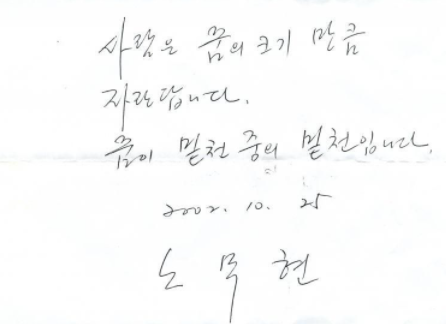 사람은 꿈의 크기 만큼
자란답니다.
꿈이 밑천 중의 밑천입니다.
2002. 10. 25
노 무 현